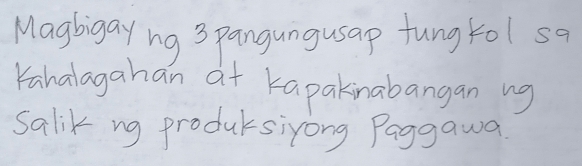 Magbigay ng 3 pangungusap tungkol sa
Kahalagahan at kapakinabangan ng
Salik ng produksiyong Paggawa.